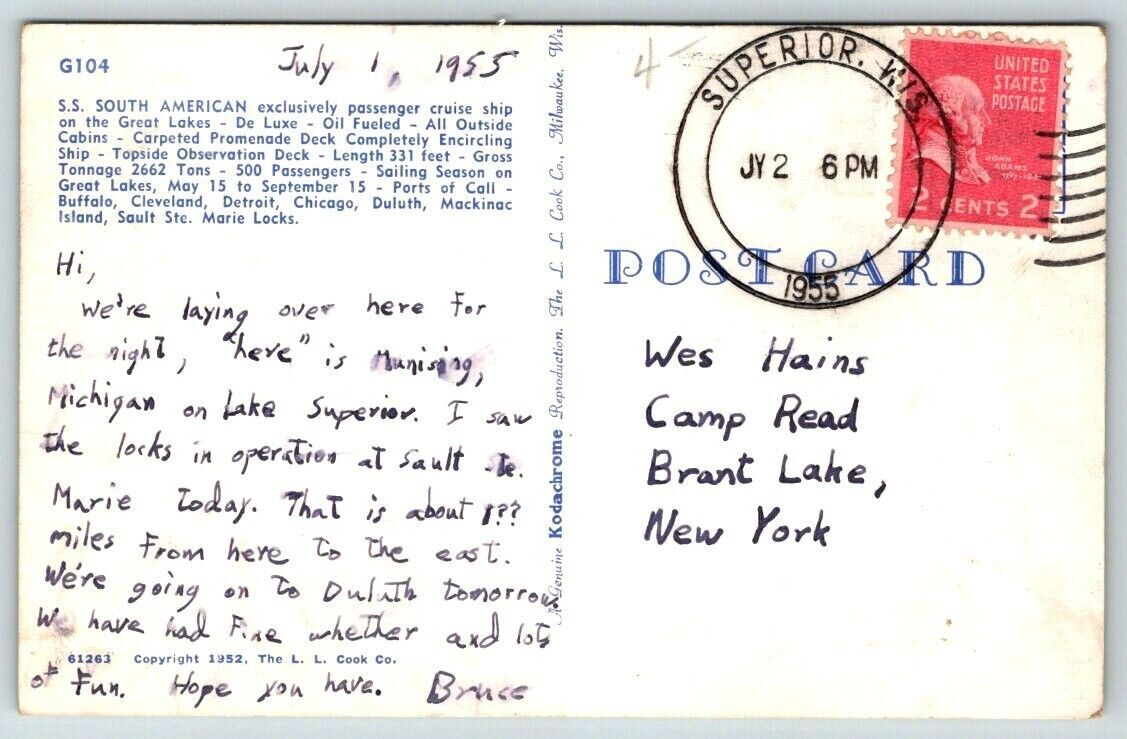 G104
July 1, 1955
S.S. SOUTH AMERICAN exclusively passenger cruise ship
on the Great Lakes - De Luxe - Oil Fueled - All Outside
Cabins - Carpeted Promenade Deck Completely Encircling
Ship - Topside Observation Deck - Length 331 feet - Gross
Tonnage 2662 Tons - 500 Passengers - Sailing Season on
Great Lakes, May 15 to September 15 - Ports of Call -
Buffalo, Cleveland, Detroit, Chicago, Duluth, Mackinac
Island, Sault Ste. Marie Locks.
Hi,
We're laying over here for
the night, "here" is Munising,
Michigan on Lake Superior. I saw
the locks in operation at Sault Ste.
Marie today. That is about 1??
miles from here to the east.
We're going on to Duluth tomorrow
We have had fine whether and lots
61263 Copyright 1952, The L. L. Cook Co.
of fun. Hope you have. Bruce
A Genuine Kodachrome Reproduction. The L. L. Cook Co., Milwaukee, Wis.
4
SUPERIOR, WIS.
JY 2 6 PM
1955
UNITED
STATES
POSTAGE
JOHN
ADAMS
2 CENTS 2
POST CARD
Wes Hains
Camp Read
Brant Lake,
New York